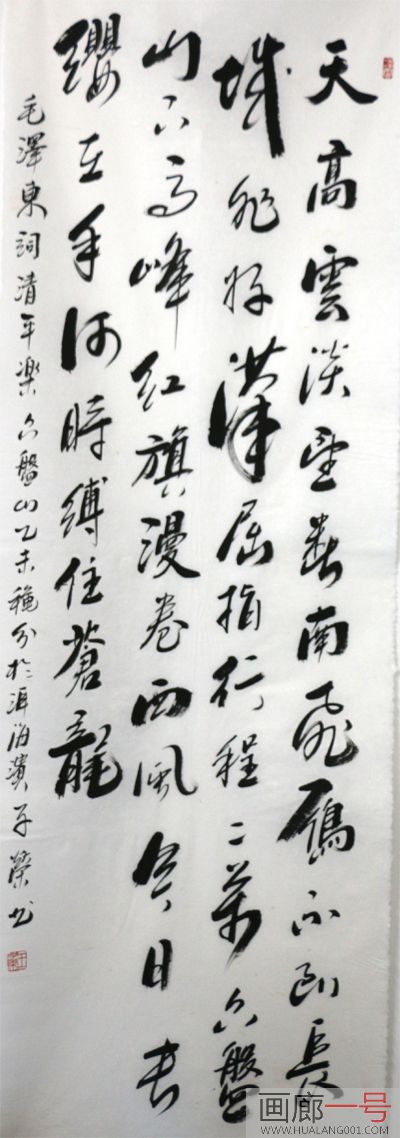 天高雲淡望斷南飛雁不到長
城非好漢屈指行程二萬六盤
山上高峰紅旗漫卷西風今日長
纓在手何時縛住蒼龍
毛澤東詞清平樂六盤山乙未穐分於洱海濱子榮书
画廊一号
WWW.HUALANG001.COM